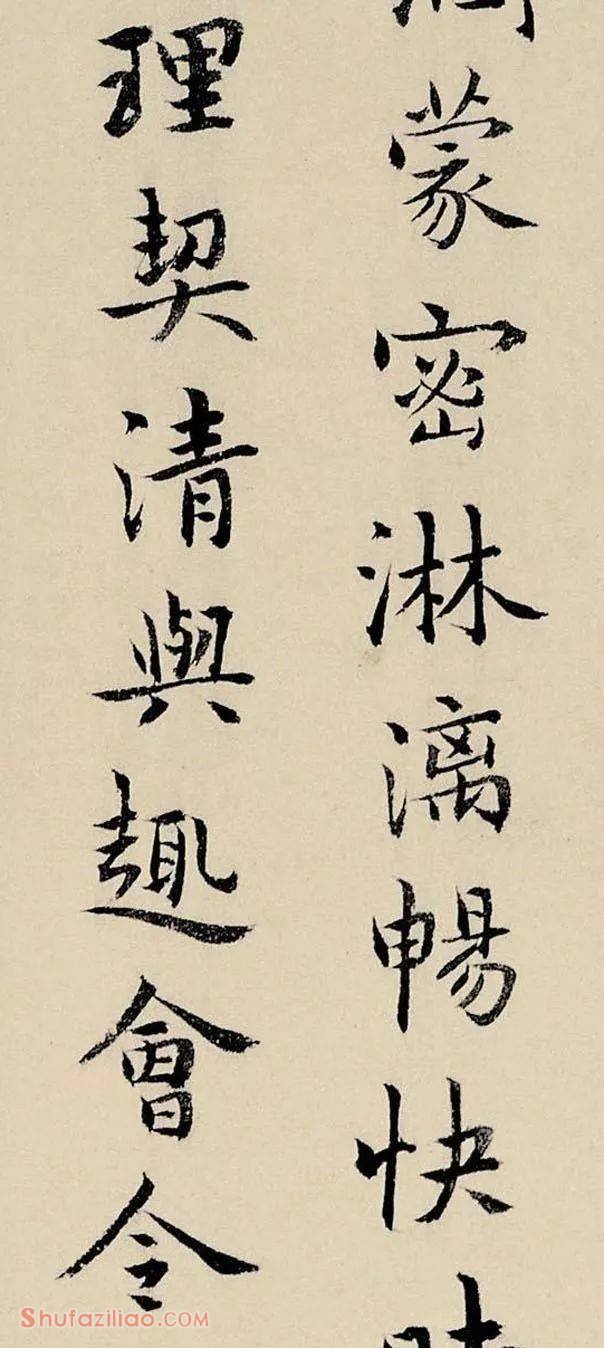 蒙密淋漓暢快
理契清與趣會令
Shufaziliao.COM